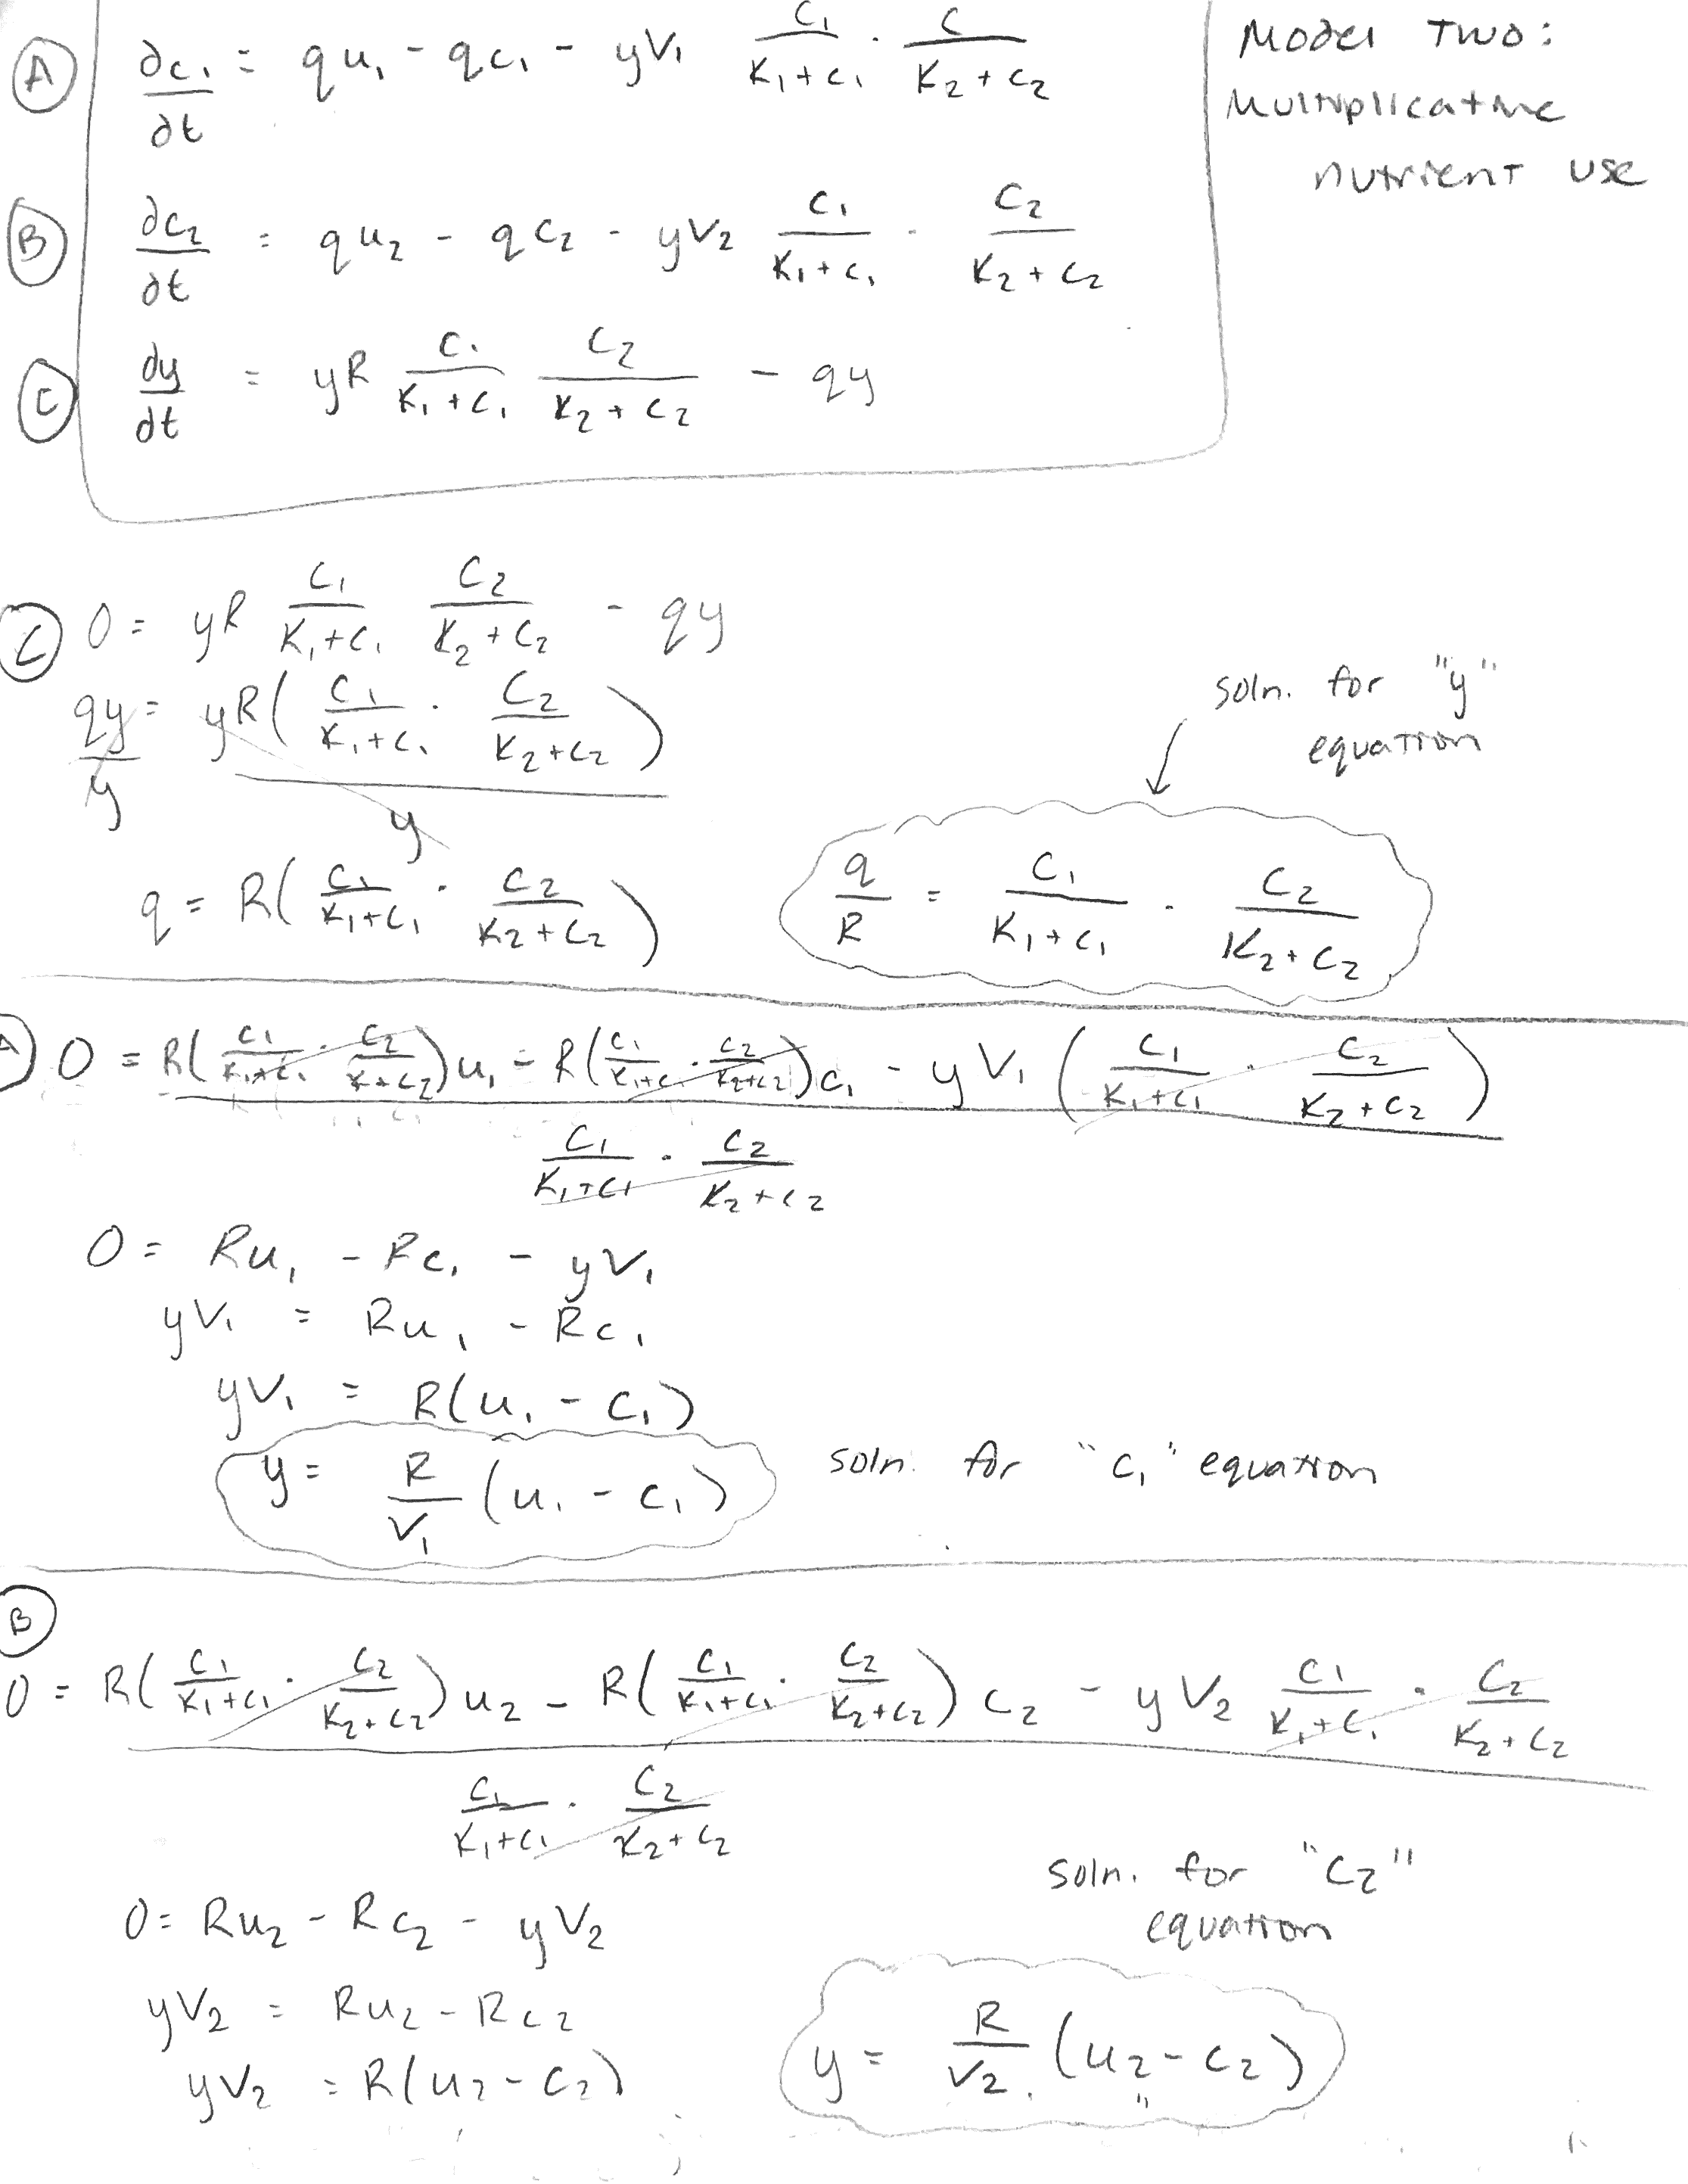 Ⓐ ∂c₁/∂t = qu₁ - qc₁ - yV₁ c₁/(K₁+c₁) · c/(K₂+c₂)
Model Two:
Multiplicative
nutrient use
Ⓑ ∂c₂/∂t = qu₂ - qc₂ - yV₂ c₁/(K₁+c₁) · c₂/(K₂+c₂)
Ⓒ ∂y/∂t = yR c₁/(K₁+c₁) c₂/(K₂+c₂) - qy
Ⓒ 0 = yR c₁/(K₁+c₁) c₂/(K₂+c₂) - qy
qy/y = yR(c₁/(K₁+c₁) · c₂/(K₂+c₂))/y
soln. for "y"
equation
q = R(c₁/(K₁+c₁) · c₂/(K₂+c₂))
q/R = c₁/(K₁+c₁) · c₂/(K₂+c₂)
Ⓐ 0 = R(c₁/(K₁+c₁) · c₂/(K+c₂))u₁ - R(c₁/(K₁+c₁) · c₂/(K₂+c₂))c₁ - yV₁(c₁/(K₁+c₁) · c₂/(K₂+c₂))
c₁/(K₁+c₁) · c₂/(K₂+c₂)
0 = Ru₁ - Rc₁ - yV₁
yV₁ = Ru₁ - Rc₁
yV₁ = R(u₁ - c₁)
y = R/V₁ (u₁ - c₁) soln. for "c₁" equation
Ⓑ
0 = R(c₁/(K₁+c₁) · c₂/(K₂+c₂))u₂ - R(c₁/(K₁+c₁) · c₂/(K₂+c₂))c₂ - yV₂ c₁/(K₁+c₁) · c₂/(K₂+c₂)
c₁/(K₁+c₁) · c₂/(K₂+c₂)
soln. for "c₂"
equation
0 = Ru₂ - Rc₂ - yV₂
yV₂ = Ru₂ - Rc₂
yV₂ = R(u₂ - c₂)
y = R/V₂ (u₂ - c₂)